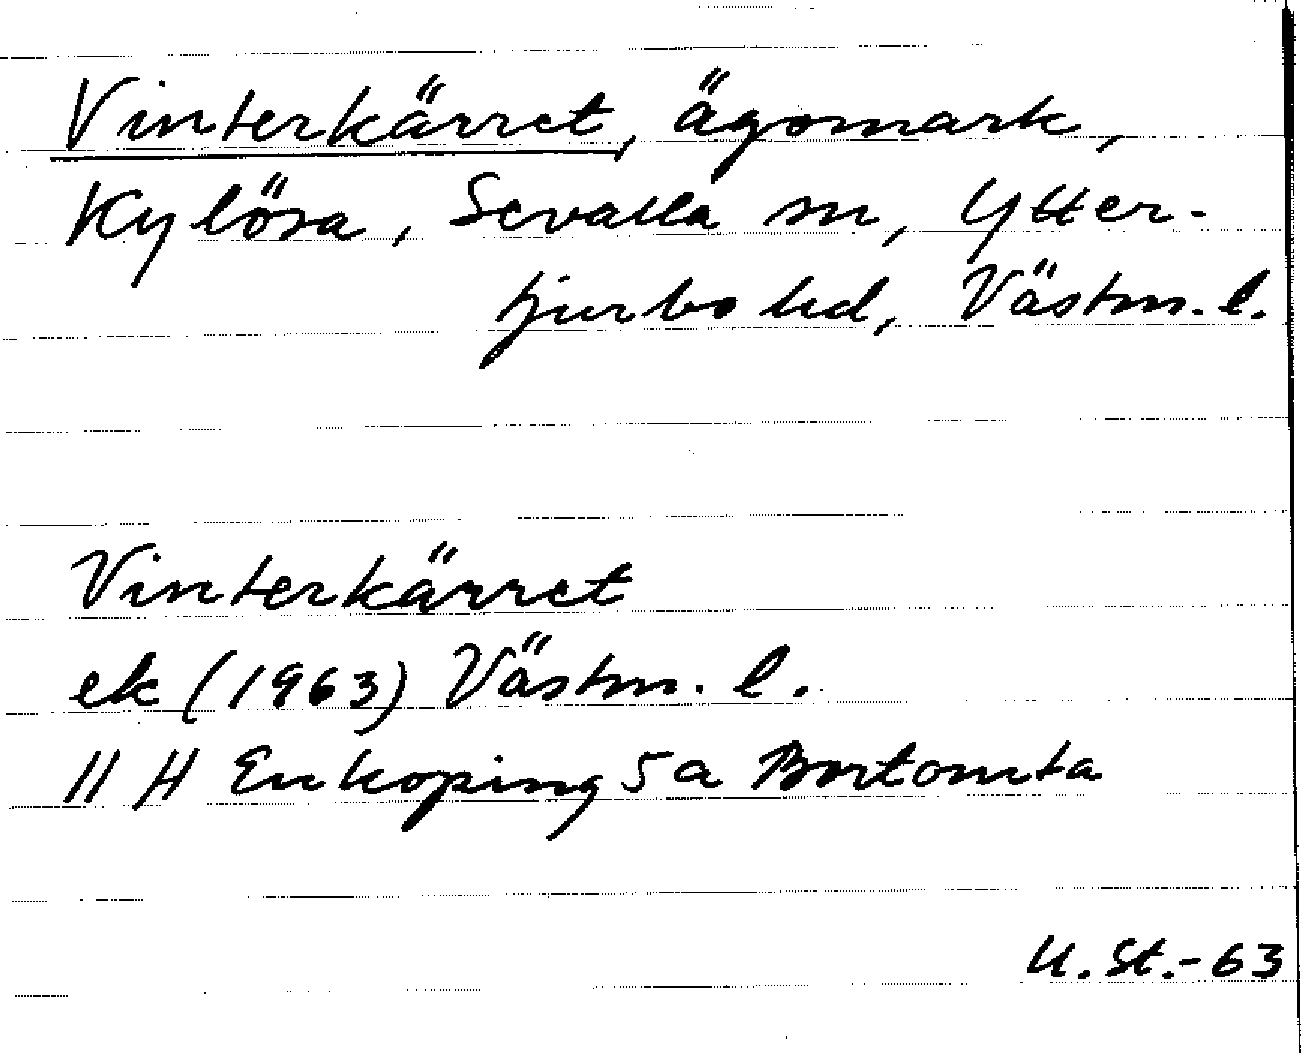 Vinterkärret, ägomark,
Kylösa, Sevalla sn, Ytter-
tjurbo hd, Västm. l.
Vinterkärret
ek (1963) Västm. l.
11 H Enköping 5a Bortomta
U. St.-63